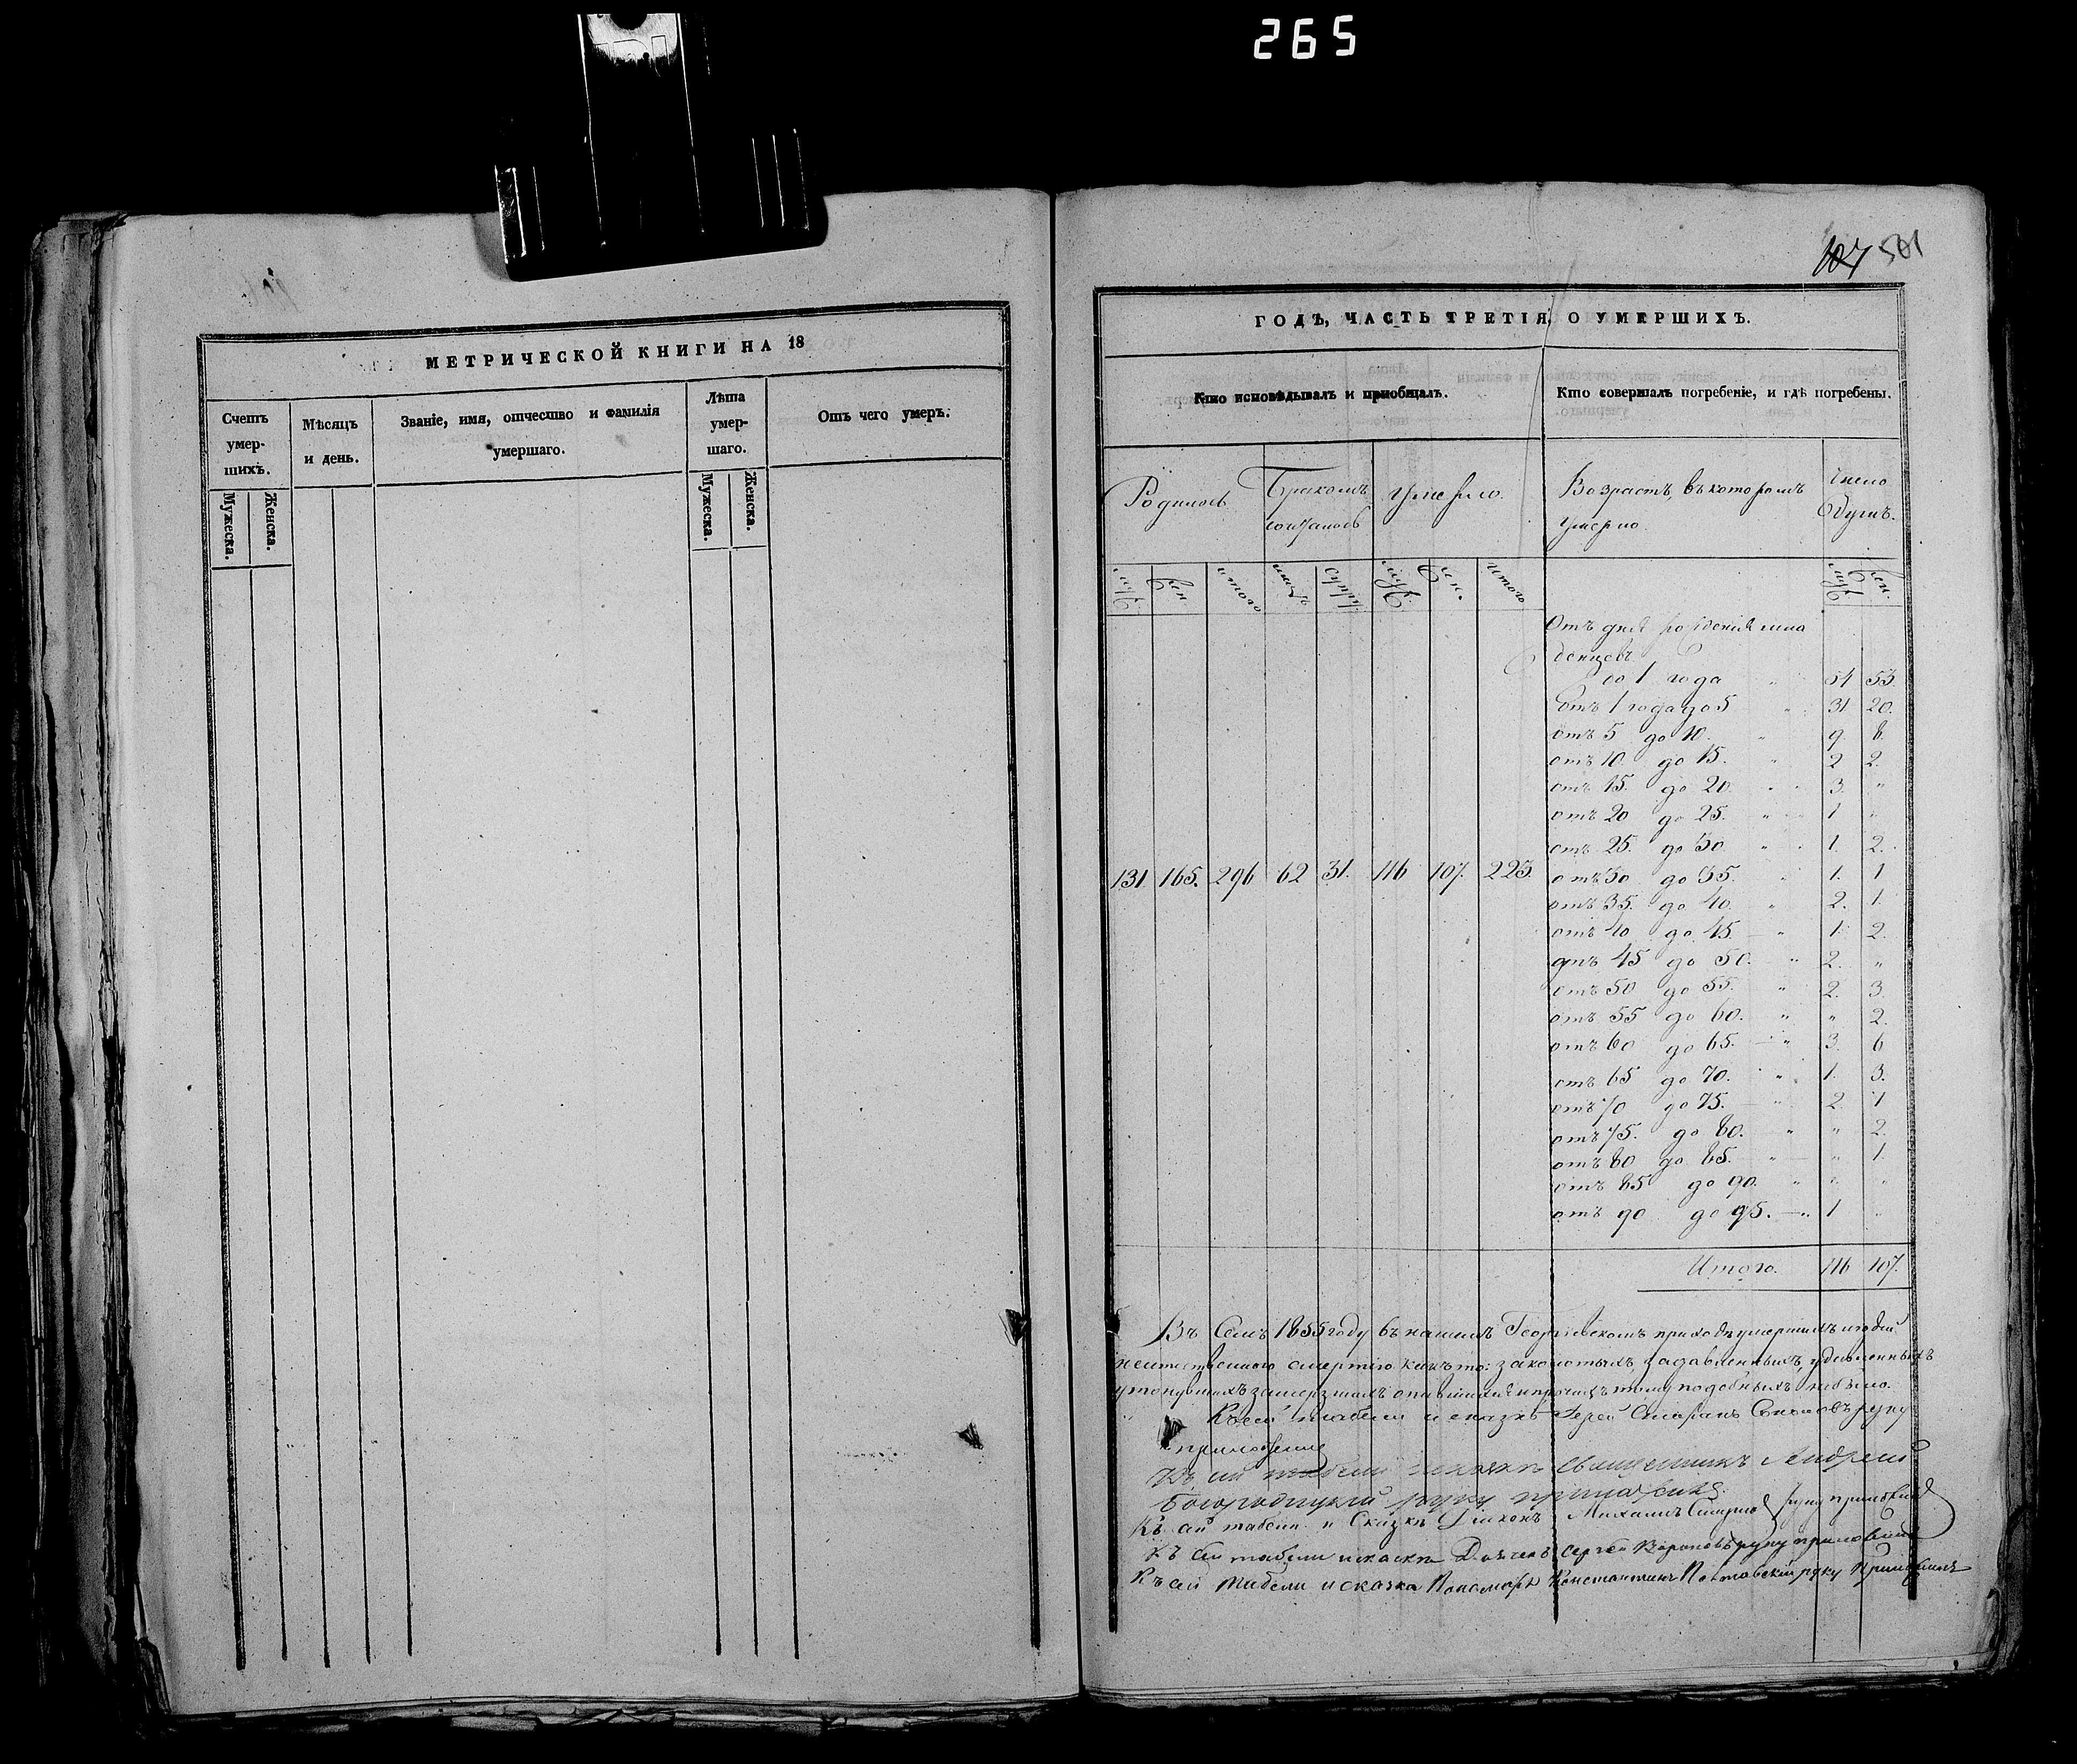 265
107 501
МЕТРИЧЕСКОЙ КНИГИ НА 18
Счетъ умер- шихъ.
Мѣсяцъ и день.
Званіе, имя, отчество и фамилія умершаго.
Лѣта умер- шаго.
Отъ чего умеръ.
Мужеска. Женска.
Мужеска. Женска.
ГОДЪ, ЧАСТЬ ТРЕТІЯ, О УМЕРШИХЪ.
Кто исповѣдывалъ и пріобщалъ.
Кто совершалъ погребеніе, и гдѣ погребены.
Родилось
Бракомъ сочталось
Умерло.
Возрастъ, въ которомъ умерло.
Число Душъ.
муж. жен итого лицъ супру. муж. жен. итого
муж жен.
Отъ дня рожденія мла
денцевъ
до 1 года 54 53.
отъ 1 года до 5 31 20.
отъ 5 до 10. 9. 8
отъ 10. до 15. 2 2.
отъ 15. до 20. 3. "
отъ 20 до 25. 1 "
отъ 25. до 30 1. 2.
131 165. 296 62 31. 116 107. 223.
отъ 30 до 35. 1. 1
отъ 35. до 40. 2. 1.
отъ 40 до 45. 1. 2.
отъ 45 до 50. 2. "
отъ 50 до 55. 2. 3.
отъ 55 до 60. " 2.
отъ 60 до 65. 3. 6
отъ 65 до 70. 1. 3.
отъ 70 до 75. 2. 1
отъ 75. до 80. " 2.
отъ 80 до 85. " 1.
отъ 85 до 90. " "
отъ 90 до 95. 1 "
Итого. 116 107.
Въ Семъ 1855 году въ нашемъ Георгіевскомъ приходѣ умершихъ людей
неестественною смертію какъ то: заколотыхъ, задавленныхъ, удавленныхъ
утопувшихъ замерзшихъ опившихся и прочихъ тому подобныхъ небыло.
Къ сей табели и сказкѣ Іерей руку
приложилъ
Къ сей табели и сказкѣ Священникъ Андрей
Богородицкій руку приложилъ.
Къ сей табели и Сказкѣ Діаконъ Михаилъ Смирновъ руку приложилъ
Къ сей табели и сказкѣ Дьячекъ Сергѣй Вороновъ руку приложилъ
Къ сей табели и сказкѣ Пономарь Константинъ руку приложилъ